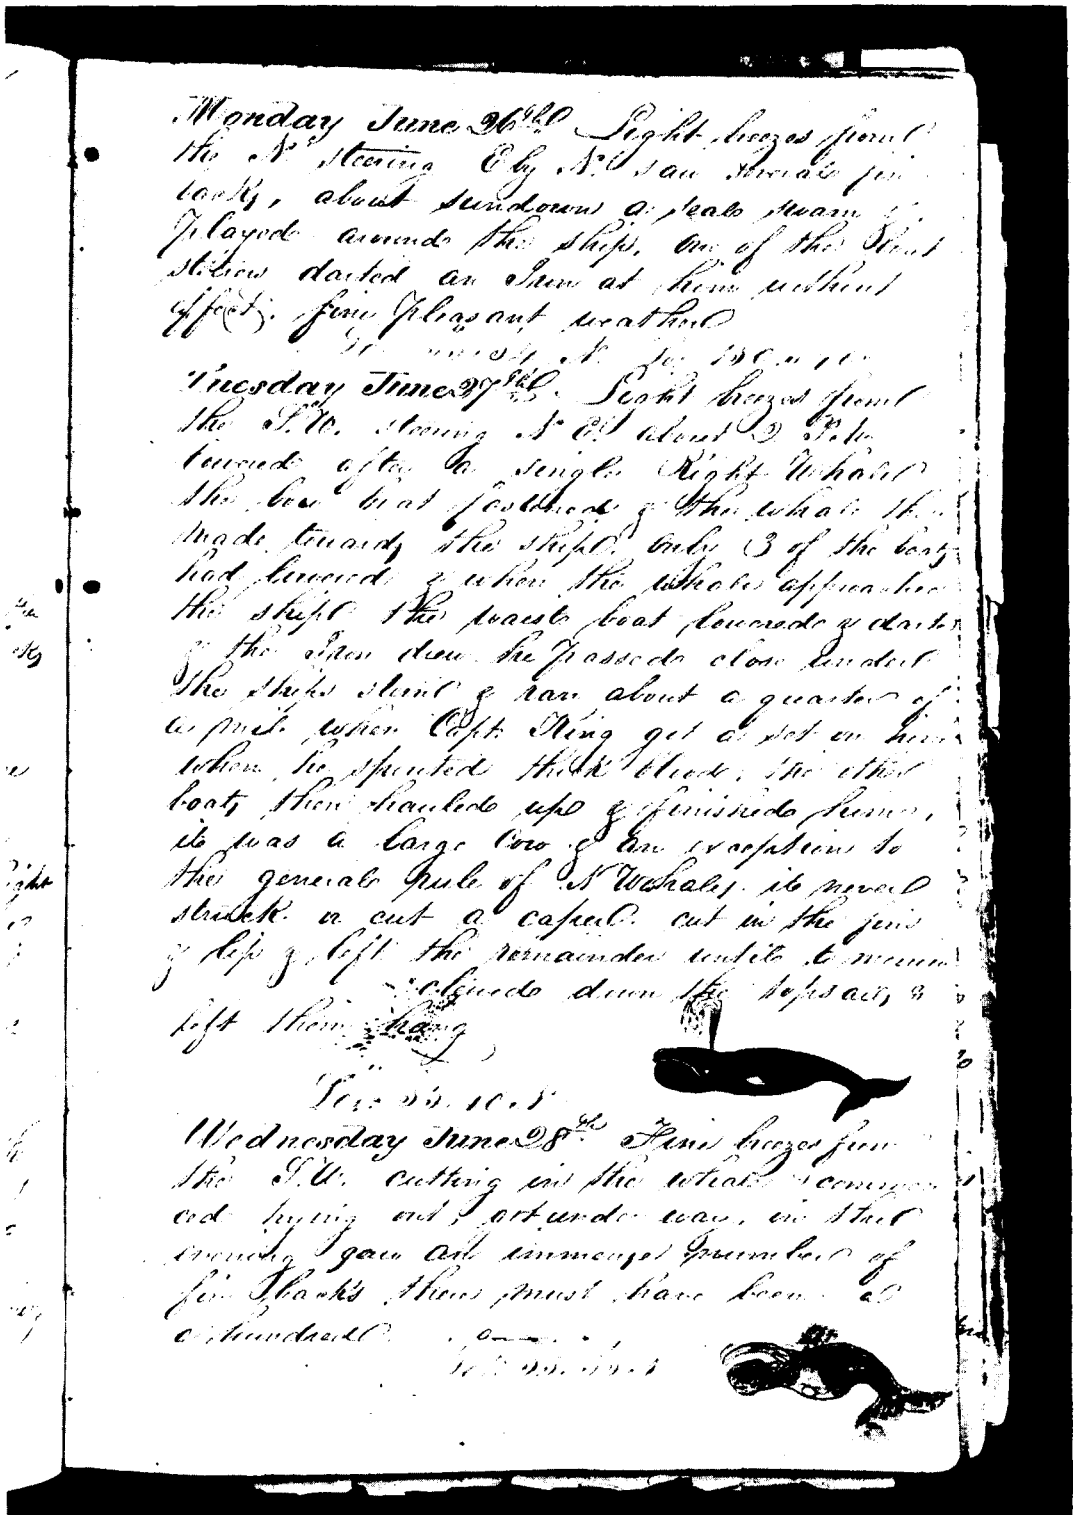 Monday June 26th Light breezes from
the Nd steering E by N. saw severals fin
backs, about sundown a seals swam &
played arounds the ship, one of the Boat
steerers darted an Iron at him without
effect. fine pleasant weather
N.
Tuesday June 27th Light breezes from
the S.W. steering N E. about 2 P.M.
lowered after a single Right Whale
the bow boat fastened & the whale then
made towards the ship. only 3 of the boats
had lowered & when the whale approached
the ship the waist boat lowered & darted
& the Iron drew. he passed close under
the ships stern & ran about a quarter of
a mile when Capt. King got a set on him
when he spouted thick blood, the other
boats then hauled up & finished him,
it was a large Cow & an exception to
the generals rule of N Whales. it never
struck or cut a caper. cut in the fins
& lip & left the remainder until to morrow
clewed down the topsails &
left them hang
Wednesday June 28th Fine breezes from
the S.W. cutting in the whale & commen
ced trying out, got under way, in the
evening saw an immense number of
fin backs there must have been
a hundred.